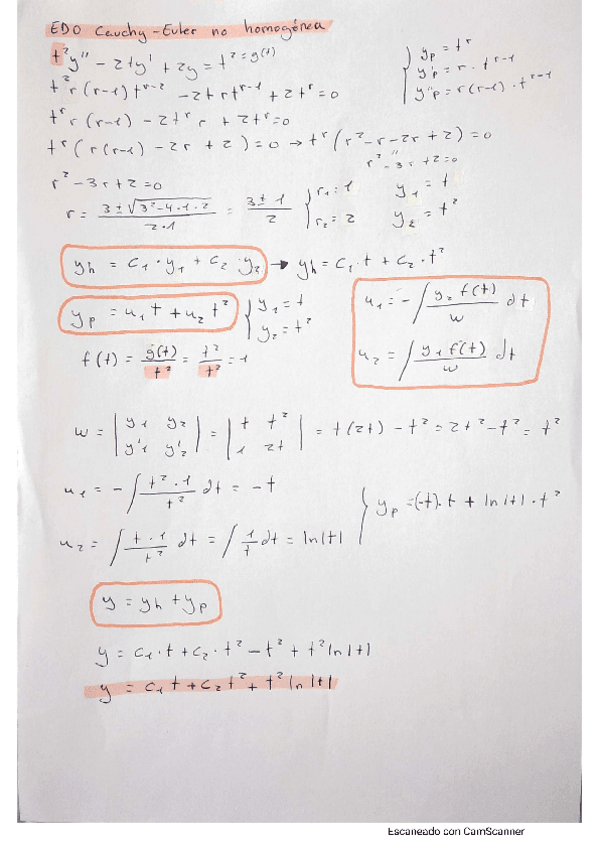 EDO Cauchy-Euler no homogénea
t²y'' - 2ty' + 2y = t² = g(t)
{ yp = t^r
y'p = r · t^(r-1)
y''p = r(r-1) · t^(r-1)
t² r(r-1) t^(r-2) - 2t r t^(r-1) + 2t^r = 0
t^r r(r-1) - 2t^r r + 2t^r = 0
t^r (r(r-1) - 2r + 2) = 0 → t^r (r² - r - 2r + 2) = 0
"
r² - 3r + 2 = 0
r² - 3r + 2 = 0
r = (3 ± √(3² - 4·1·2))/(2·1) = (3 ± 1)/2 { r₁ = 1 y₁ = t
r₂ = 2 y₂ = t²
yh = c₁ · y₁ + c₂ · y₂ → yh = c₁ · t + c₂ · t²
yp = u₁t + u₂t² { y₁ = t
y₂ = t²
u₁ = - ∫ (y₂ f(t))/w dt
u₂ = ∫ (y₁ f(t))/w dt
f(t) = g(t)/t² = t²/t² = 1
w = |y₁ y₂| = |t t²| = t(2t) - t² = 2t² - t² = t²
|y'₁ y'₂| |1 2t|
u₁ = - ∫ (t² · 1)/t² dt = -t
} yp = (-t)·t + ln|t| · t²
u₂ = ∫ (t · 1)/t² dt = ∫ 1/t dt = ln|t|
y = yh + yp
y = c₁ · t + c₂ · t² - t² + t² ln|t|
y = c₁t + c₂t² + t² ln|t|
Escaneado con CamScanner